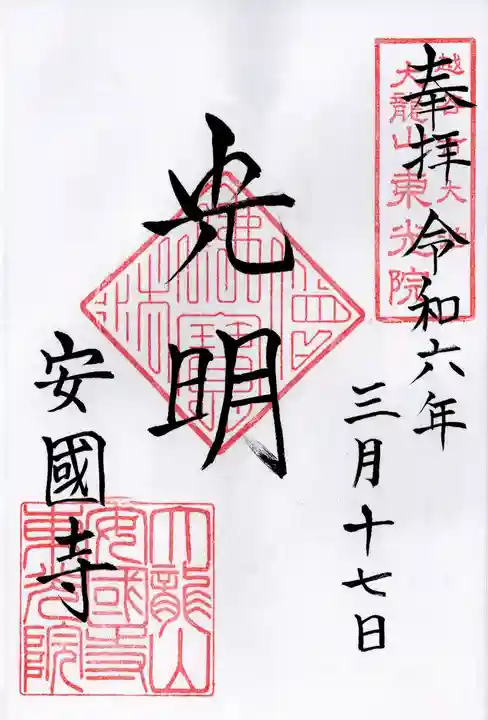 奉拝 令和六年
三月十七日
大龍山東光院
光明
安國寺
大龍山
安國寺
東光院